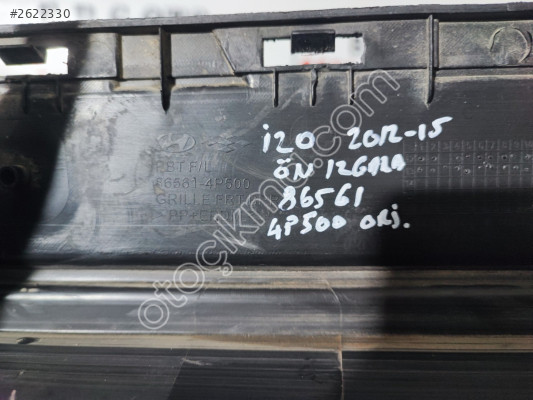 #2622330
i20 2012-15
ÖN IZGARA
86561
4P500 ORJ.
PBT F/L
86561-4P500
GRILLE
otoçıkma.com